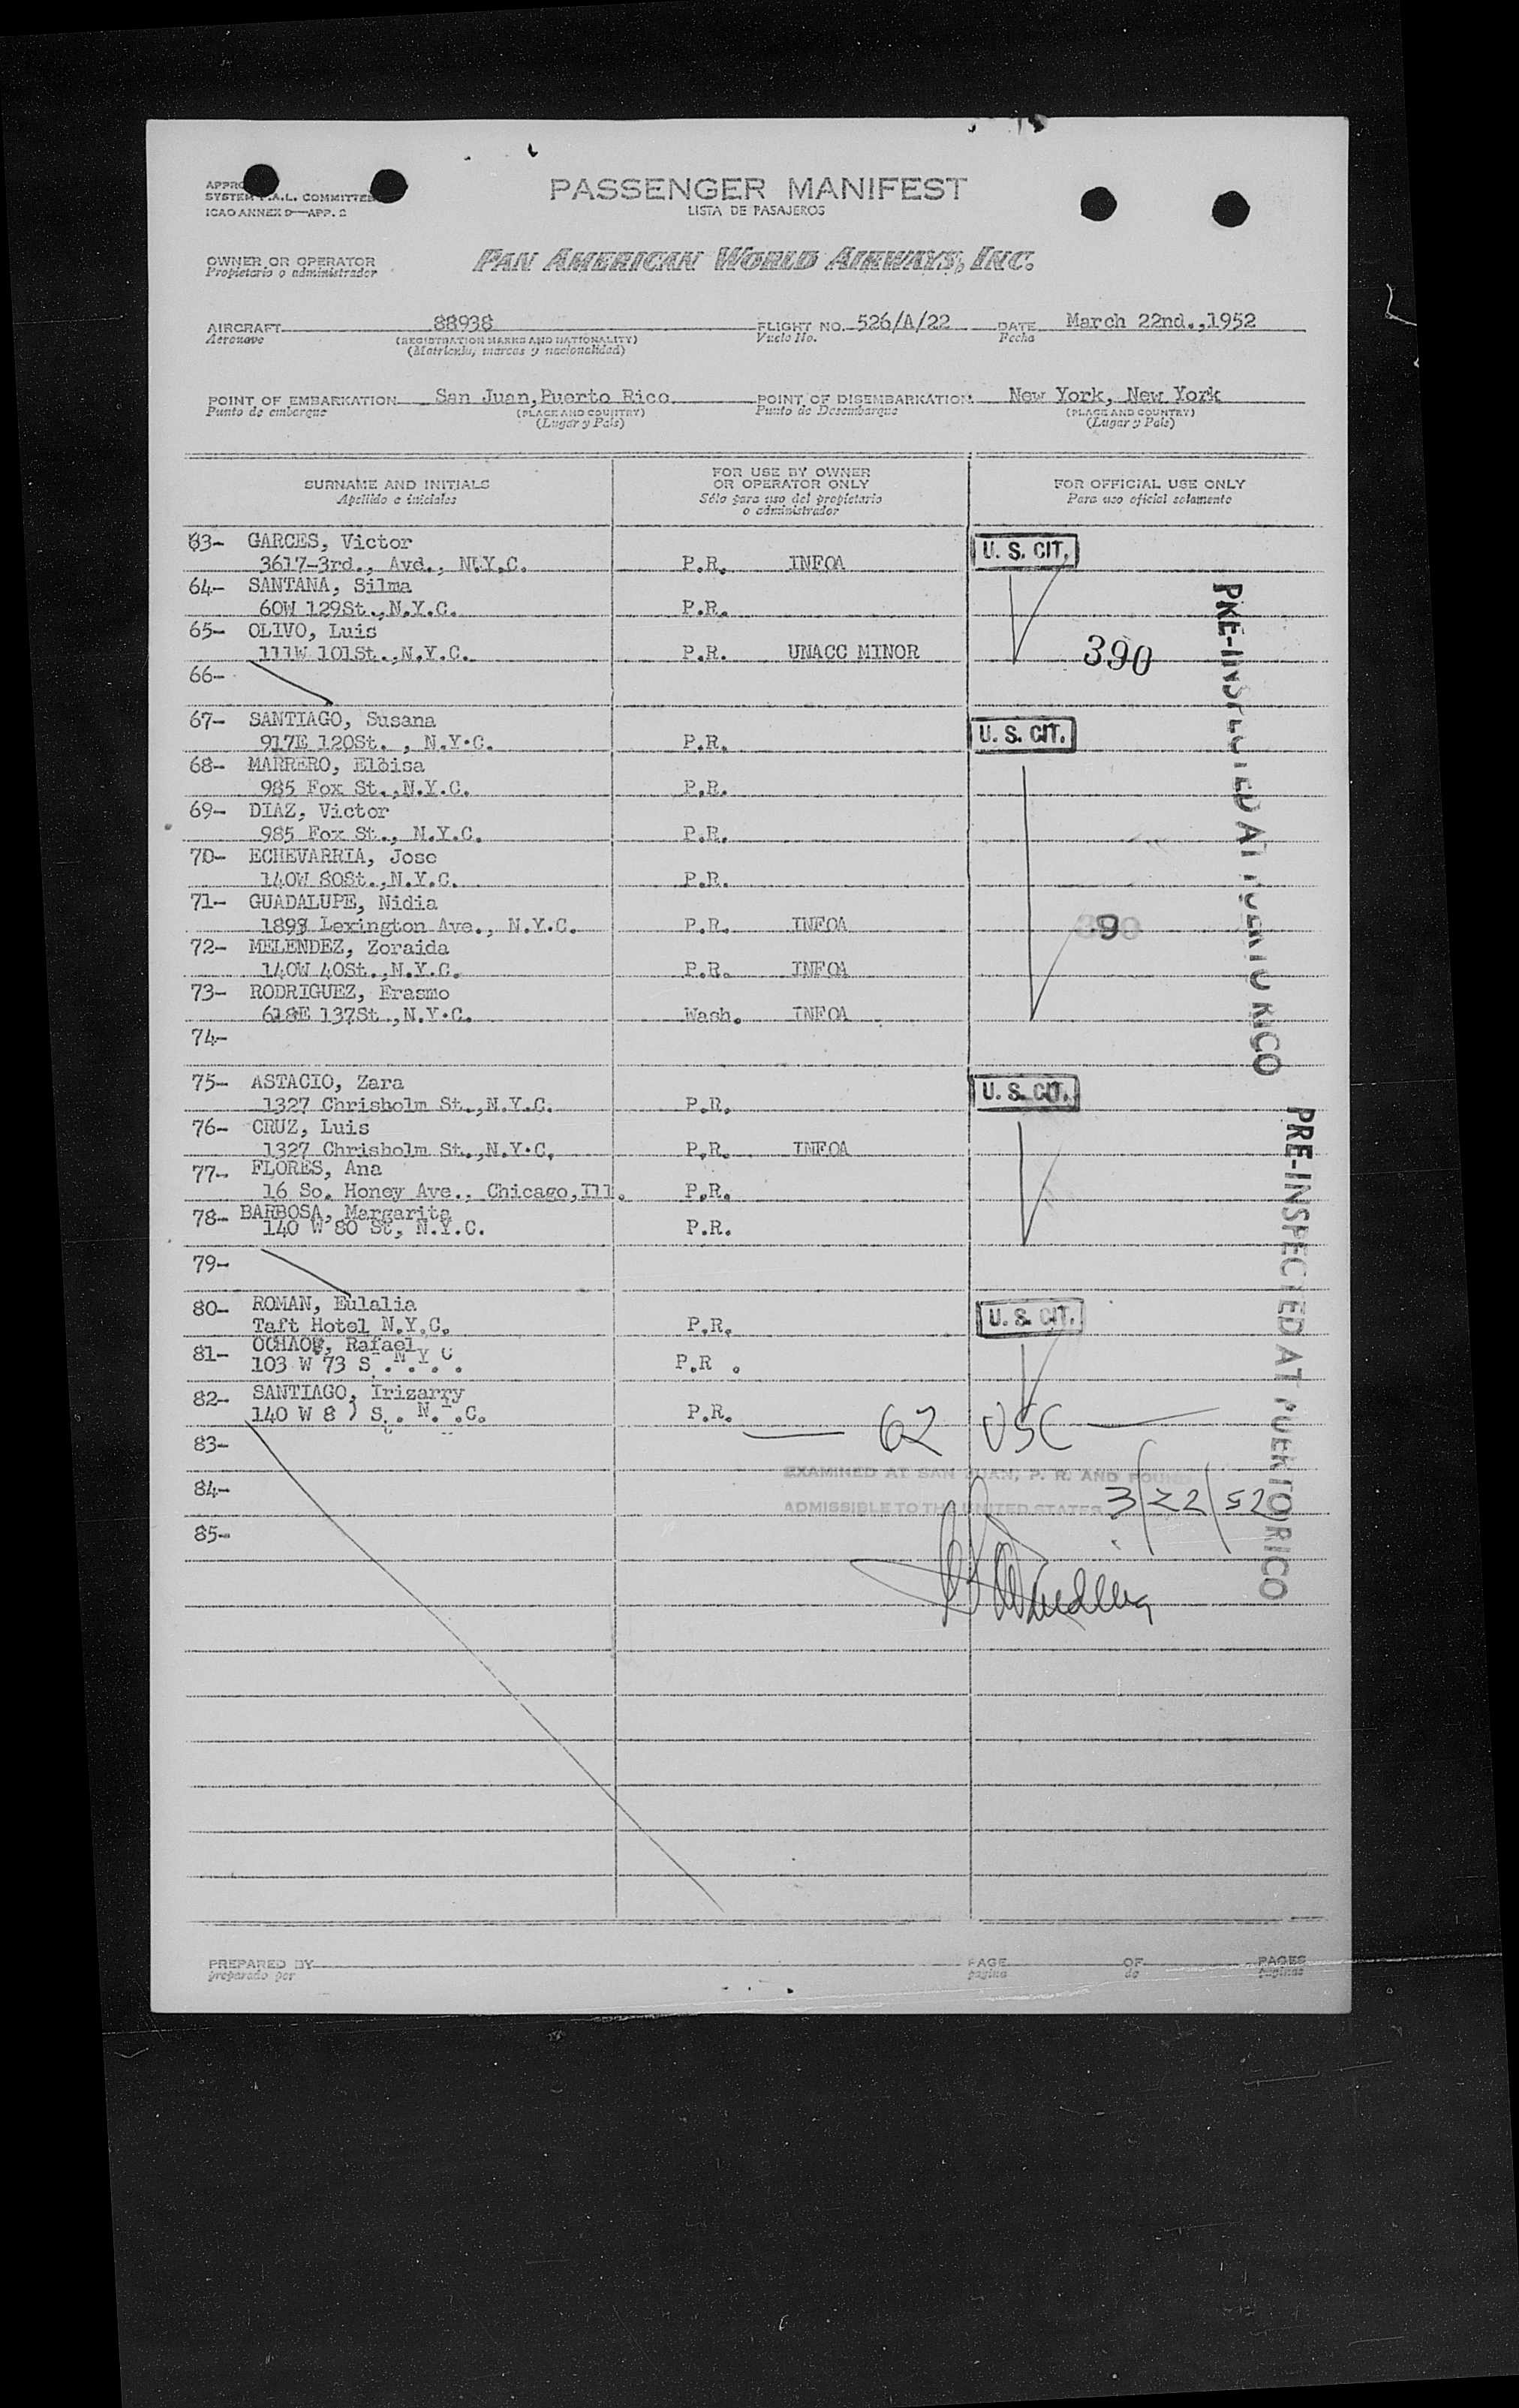 PASSENGER MANIFEST
LISTA DE PASAJEROS
SYSTEM F.A.L. COMMITTEE
ICAO ANNEX 9—APP. 2
OWNER OR OPERATOR
Propietario o administrador
PAN AMERICAN WORLD AIRWAYS, INC.
AIRCRAFT 88938 FLIGHT NO. 526/A/22 DATE March 22nd.,1952
Aeronave (REGISTRATION MARKS AND NATIONALITY) Vuelo No. Fecha
(Matricula, marcas y nacionalidad)
POINT OF EMBARKATION San Juan,Puerto Rico. POINT OF DISEMBARKATION New York, New York
Punto de embarque (PLACE AND COUNTRY) Punto de Desembarque (PLACE AND COUNTRY)
(Lugar y País) (Lugar y País)
SURNAME AND INITIALS
Apellido e iniciales
FOR USE BY OWNER
OR OPERATOR ONLY
Sólo para uso del propietario
o administrador
FOR OFFICIAL USE ONLY
Para uso oficial solamente
63- GARCES, Victor
3617-3rd., Avd., N.Y.C. P.R. INFOA U. S. CIT.
64- SANTANA, Silma
60W 129St.,N.Y.C. P.R.
65- OLIVO, Luis
111W 101St.,N.Y.C. P.R. UNACC MINOR 390
66-
67- SANTIAGO, Susana
917E 120St. , N.Y.C. P.R. U. S. CIT.
68- MARRERO, Eloisa
985 Fox St.,N.Y.C. P.R.
69- DIAZ, Victor
985 Fox St., N.Y.C. P.R.
70- ECHEVARRIA, Jose
140W 80St.,N.Y.C. P.R.
71- GUADALUPE, Nidia
1898 Lexington Ave., N.Y.C. P.R. INFOA 390
72- MELENDEZ, Zoraida
140W 40St.,N.Y.C. P.R. INFOA
73- RODRIGUEZ, Erasmo
618E 137St.,N.Y.C. Wash. INFOA
74-
75- ASTACIO, Zara
1327 Chrisholm St.,N.Y.C. P.R. U. S. CIT.
76- CRUZ, Luis
1327 Chrisholm St.,N.Y.C. P.R. INFOA
77- FLORES, Ana
16 So. Honey Ave., Chicago,Ill. P.R.
78- BARBOSA, Margarita
140 W 80 St, N.Y.C. P.R.
79-
80- ROMAN, Eulalia
Taft Hotel N.Y.C. P.R. U. S. CIT.
81- Rafael
103 W 73 S . N.Y.C. P.R .
82- SANTIAGO, Irizarry
140 W 8 S. N. .C. P.R.
62 USC
83-
EXAMINED AT SAN JUAN, P. R. AND FOUND
84-
ADMISSIBLE TO THE UNITED STATES 3/22/52
85-
PRE-INSPECTED AT PUERTO RICO
PRE-INSPECTED AT PUERTO RICO
PREPARED BY PAGE OF PAGES
preparado por pagina de paginas